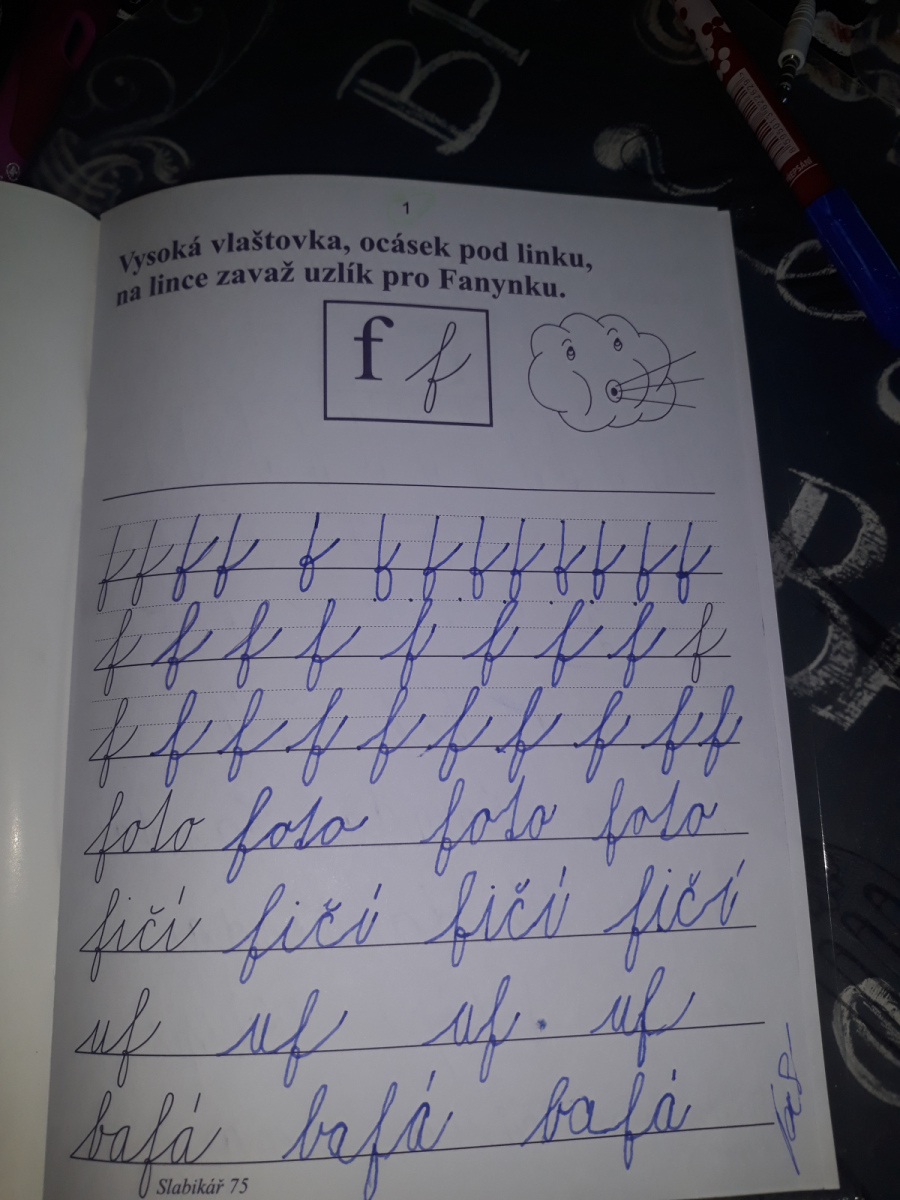 1
Vysoká vlaštovka, ocásek pod linku,
na lince zavaž uzlík pro Fanynku.
f f
f f f f f f f f f f f f f
f f f f f f f f f
f f f f f f f f f f
foto foto foto foto
fičí fičí fičí fičí
uf uf uf. uf
bafá bafá bafá
Slabikář 75